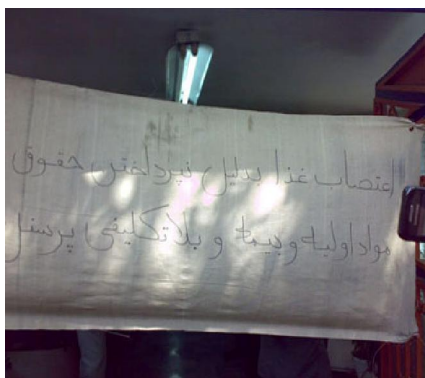 اعتصاب غذا بدلیل نپرداختن حقوق
مواد اولیه و بیمه و بلاتکلیفی پرسنل